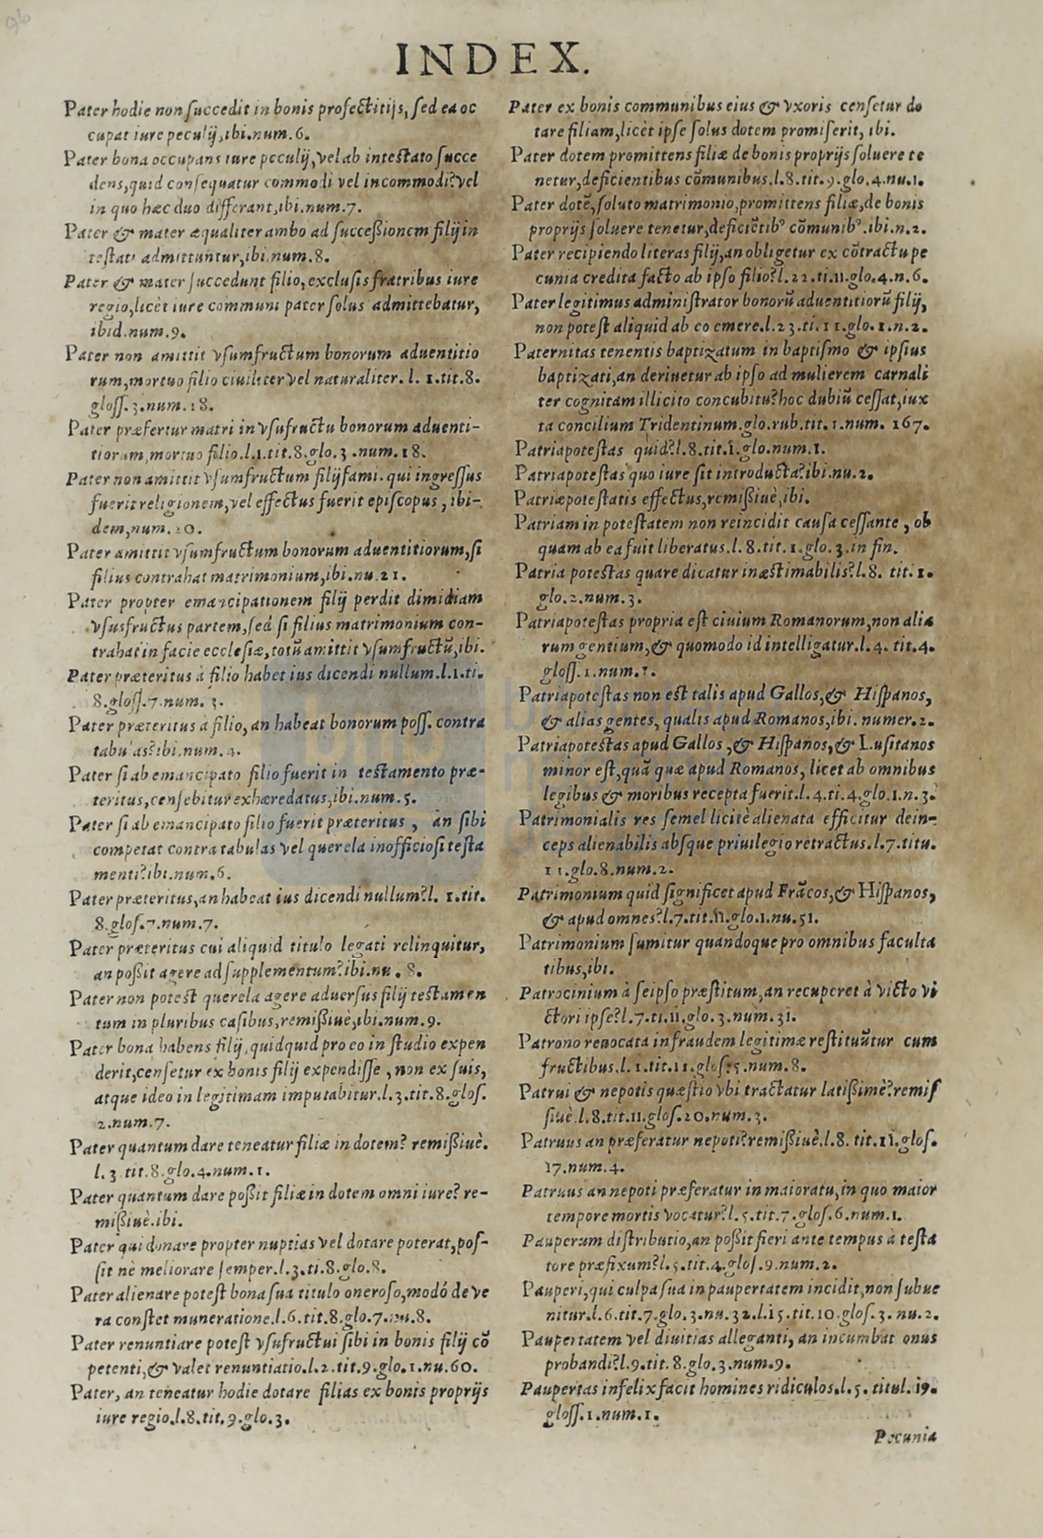 96
INDEX.
Pater hodie non succedit in bonis profectitijs, sed ea oc
cupat iure peculij, ibi.num.6.
Pater bona occupans iure peculij, vel ab intestato succe
dens, quid consequatur commodi vel incommodi? vel
in quo hæc duo differant, ibi.num.7.
Pater & mater æqualiter ambo ad successionem filij in
testati admittuntur, ibi.num.8.
Pater & mater succedunt filio, exclusis fratribus iure
regio, licèt iure communi pater solus admittebatur,
ibid.num.9.
Pater non amittit vsumfructum bonorum aduentitio
rum, mortuo filio ciuiliter vel naturaliter. l. 1.tit.8.
gloss.3.num.18.
Pater præfertur matri in vsufructu bonorum aduenti-
tiorum, mortuo filio.l.1.tit.8.glo.3.num.18.
Pater non amittit vsumfructum filijfami. qui ingressus
fuerit religionem, vel effectus fuerit episcopus, ibi-
dem, num.20.
Pater amittit vsumfructum bonorum aduentitiorum, si
filius contrahat matrimonium, ibi.nu.21.
Pater propter emancipationem filij perdit dimidiam
vsusfructus partem, sed si filius matrimonium con-
trahat in facie ecclesiæ, totũ amittit vsumfructũ, ibi.
Pater præteritus à filio habet ius dicendi nullum.l.1.ti.
8.gloss.7.num.3.
Pater præteritus à filio, an habeat bonorum poss. contra
tabulas? ibi.num.4.
Pater si ab emancipato filio fuerit in testamento præ-
teritus, censebitur exhæredatus, ibi.num.5.
Pater si ab emancipato filio fuerit præteritus, an sibi
competat contra tabulas vel querela inofficiosi testa
menti? ibi.num.6.
Pater præteritus, an habeat ius dicendi nullum? l. 1.tit.
8.glos.7.num.7.
Pater præteritus cui aliquid titulo legati relinquitur,
an possit agere ad supplementum? ibi.nu.8.
Pater non potest querela agere aduersus filij testamen
tum in pluribus casibus, remissiuè, ibi.num.9.
Pater bona habens filij, quidquid pro eo in studio expen
derit, censetur ex bonis filij expendisse, non ex suis,
atque ideo in legitimam imputabitur.l.3.tit.8.glos.
2.num.7.
Pater quantum dare teneatur filiæ in dotem? remissiuè.
l.3.tit.8.glo.4.num.1.
Pater quantum dare possit filiæ in dotem omni iure? re-
missiuè.ibi.
Pater qui donare propter nuptias vel dotare poterat, pos-
sit nè meliorare semper.l.3.ti.8.glo.8.
Pater alienare potest bona sua titulo oneroso, modó de ve
ra constet muneratione.l.6.tit.8.glo.7.nu.8.
Pater renuntiare potest vsufructui sibi in bonis filij cõ
petenti, & valet renuntiatio.l.2.tit.9.glo.1.nu.60.
Pater, an teneatur hodie dotare filias ex bonis proprijs
iure regio.l.8.tit.9.glo.3.
Pater ex bonis communibus eius & vxoris censetur do
tare filiam, licèt ipse solus dotem promiserit, ibi.
Pater dotem promittens filiæ de bonis proprijs soluere te
netur, deficientibus cõmunibus.l.8.tit.9.glo.4.nu.1.
Pater dotẽ, soluto matrimonio, promittens filiæ, de bonis
proprijs soluere tenetur, deficiẽtibꝰ cõmunibꝰ.ibi.n.2.
Pater recipiendo literas filij, an obligetur ex cõtractu pe
cunia credita facto ab ipso filio? l.22.ti.11.glo.4.n.6.
Pater legitimus administrator bonorũ aduentitiorũ filij,
non potest aliquid ab eo emere.l.23.ti.11.glo.1.n.2.
Paternitas tenentis baptizatum in baptismo & ipsius
baptizati, an deriuetur ab ipso ad mulierem carnali
ter cognitam illicito concubitu? hoc dubiũ cessat, iux
ta concilium Tridentinum.glo.rub.tit.1.num.167.
Patriapotestas quid? l.8.tit.1.glo.num.1.
Patriapotestas quo iure sit introducta? ibi.nu.2.
Patriæpotestatis effectus, remissiuè, ibi.
Patriam in potestatem non reincidit causa cessante, ob
quam ab ea fuit liberatus.l.8.tit.1.glo.3.in fin.
Patria potestas quare dicatur inæstimabilis? l.8. tit.1.
glo.2.num.3.
Patriapotestas propria est ciuium Romanorum, non alia
rum gentium, & quomodo id intelligatur.l.4. tit.4.
gloss.1.num.1.
Patriapotestas non est talis apud Gallos, & Hispanos,
& alias gentes, qualis apud Romanos, ibi. numer.2.
Patriapotestas apud Gallos, & Hispanos, & Lusitanos
minor est, quã quæ apud Romanos, licet ab omnibus
legibus & moribus recepta fuerit.l.4.ti.4.glo.1.n.3.
Patrimonialis res semel licitè alienata efficitur dein-
ceps alienabilis absque priuilegio retractus.l.7.titu.
11.glo.8.num.2.
Patrimonium quid significet apud Frãcos, & Hispanos,
& apud omnes? l.7.tit.11.glo.1.nu.51.
Patrimonium sumitur quandoque pro omnibus faculta
tibus, ibi.
Patrocinium à seipso præstitum, an recuperet à victo vi
ctori ipse? l.7.ti.11.glo.3.num.31.
Patrono reuocata in fraudem legitimæ restituũtur cum
fructibus.l.1.tit.11.glos.5.num.8.
Patrui & nepotis quæstio vbi tractatur latissimè? remis
siuè.l.8.tit.11.glos.20.num.3.
Patruus an præferatur nepoti? remissiuè.l.8. tit.11.glos.
17.num.4.
Patruus an nepoti præferatur in maioratu, in quo maior
tempore mortis vocatur? l.5.tit.7.glos.6.num.1.
Pauperum distributio, an possit fieri ante tempus à testa
tore præfixum? l.5.tit.4.glos.9.num.2.
Pauperi, qui culpa sua in paupertatem incidit, non subue
nitur.l.6.tit.7.glo.3.nu.32.l.15.tit.10.glos.3.nu.2.
Paupertatem vel diuitias alleganti, an incumbat onus
probandi? l.9.tit.8.glo.3.num.9.
Paupertas infelix facit homines ridiculos.l.5. titul.19.
gloss.1.num.1.
Pecunia